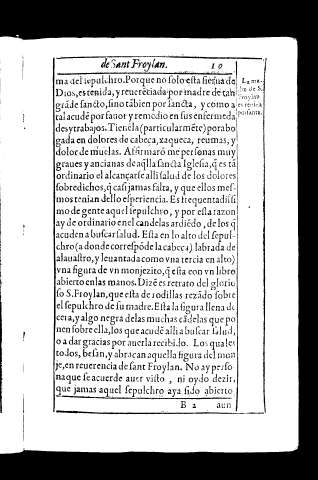 de Sant Froylan. 10
ma del sepulchro. Porque no solo esta sierua de
Dios, es tenida, y reuerẽciada por madre de tan
grãde sancto, sino tãbien por sancta, y como a
tal acudẽ por fauor y remedio en sus enfermeda
des y trabajos. Tienẽla (particularmẽte) por abo
gada en dolores de cabeça, xaqueca, reumas, y
dolor de muelas. Afirmarõ me personas muy
graues y ancianas de aq̃lla sancta Iglesia, q̃ es tã
ordinario el alcançarse alli salud de los dolores
sobredichos, q̃ casi jamas falta, y que ellos mes-
mos tenian dello esperiencia. Es frequentadissi
mo de gente aquel sepulchro, y por esta razon
ay de ordinario en el candelas ardiẽdo, de los q̃
acuden a buscar salud. Esta en lo alto del sepul-
chro (a donde correspõde la cabeça) labrada de
alauastro, y leuantada como vna tercia en alto)
vna figura de vn monjezito, q̃ esta con vn libro
abierto en las manos. Dizẽ es retrato del glorio
so S. Froylan, que esta de rodillas rezãdo sobre
el sepulchro de su madre. Esta la figura llena de
cera, y algo negra de las muchas cãdelas que po
nen sobre ella, los que acudẽ alli a buscar salud,
o a dar gracias por auerla recibido. Los quales
todos, besan, y abraçan aquella figura del mon
je, en reuerencia de sant Froylan. No ay perso
na que se acuerde auer visto, ni oydo dezir,
que jamas aquel sepulchro aya sido abierto
B 2 aun
La ma-
dre de S.
Froylan
es tenida
por santa.